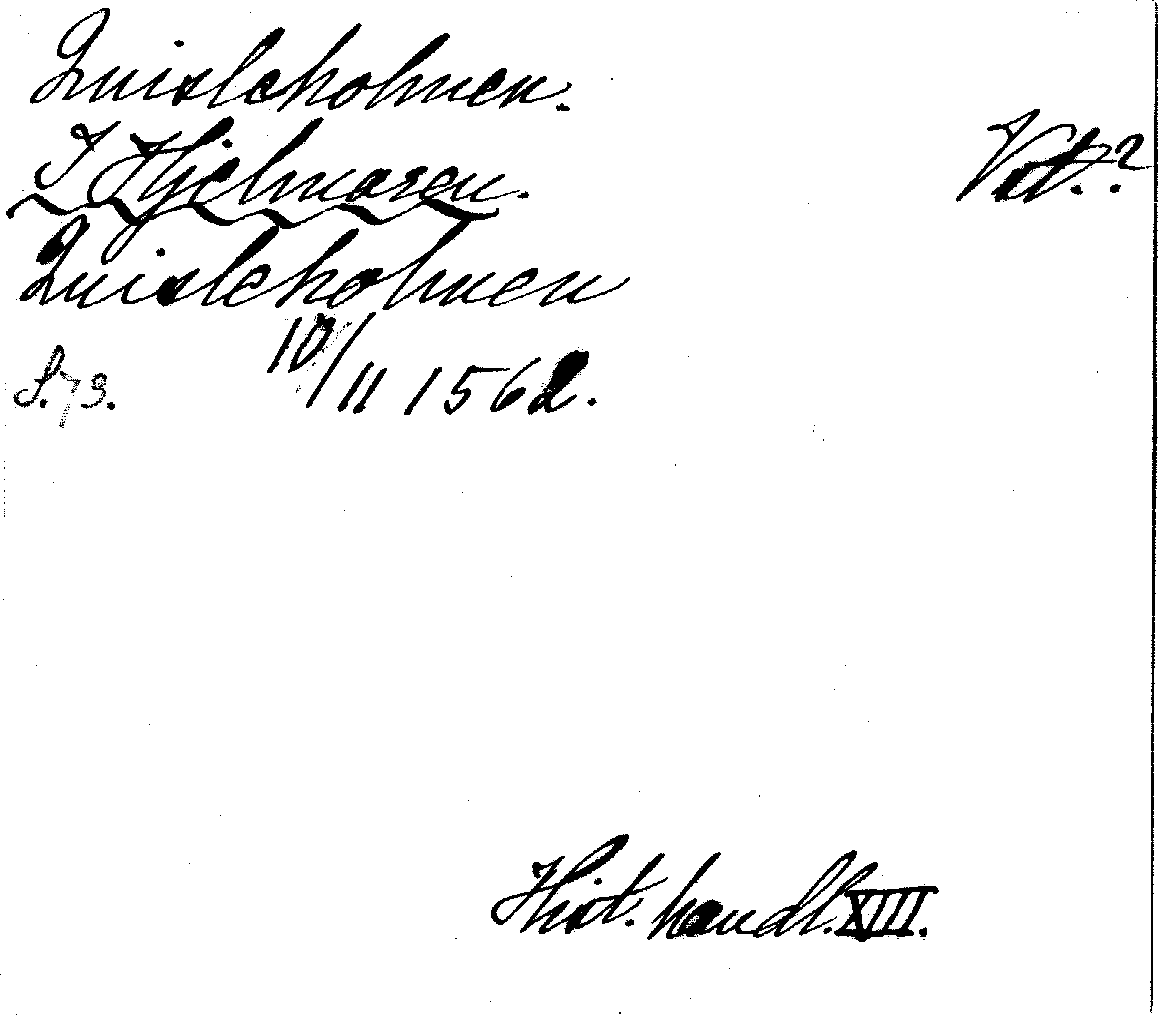 Quisleholmen.
I Hjelmaren.
Vst.?
Quisleholmen
10/11 1562.
S. 73.
Hist. handl. XIII.